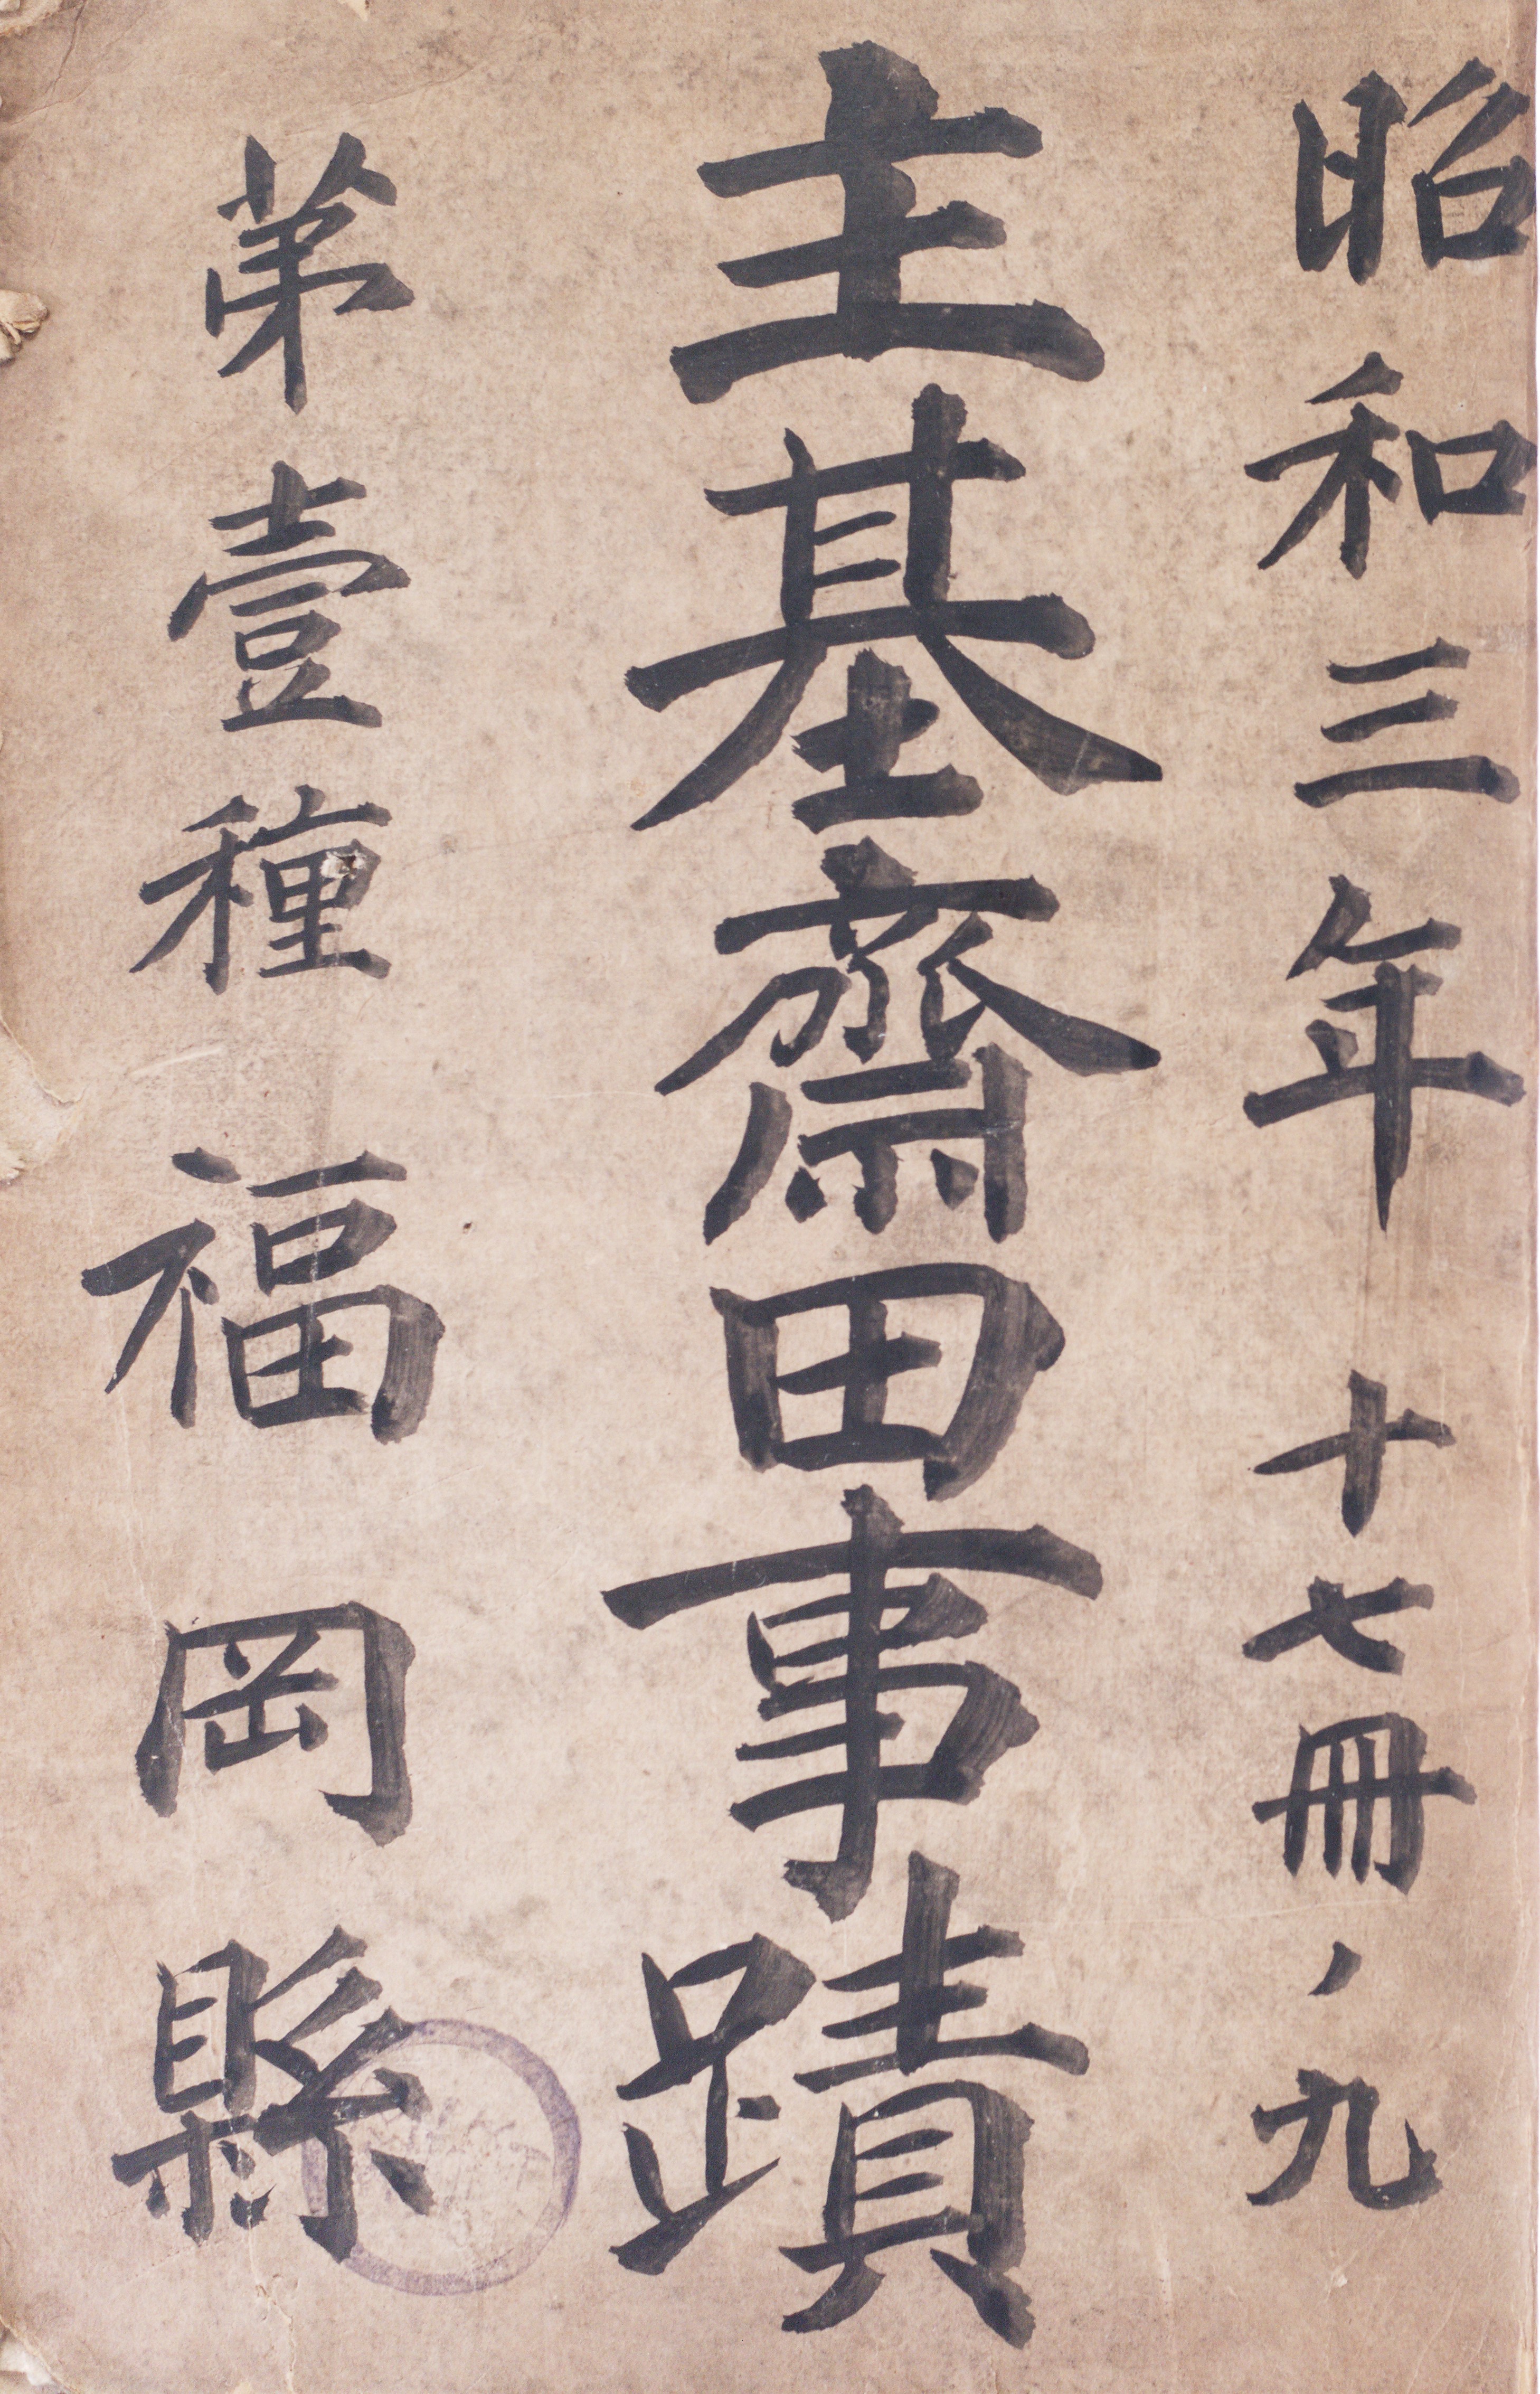 昭和三年 十七冊ノ九
主基齋田事蹟
第壹種 福岡縣